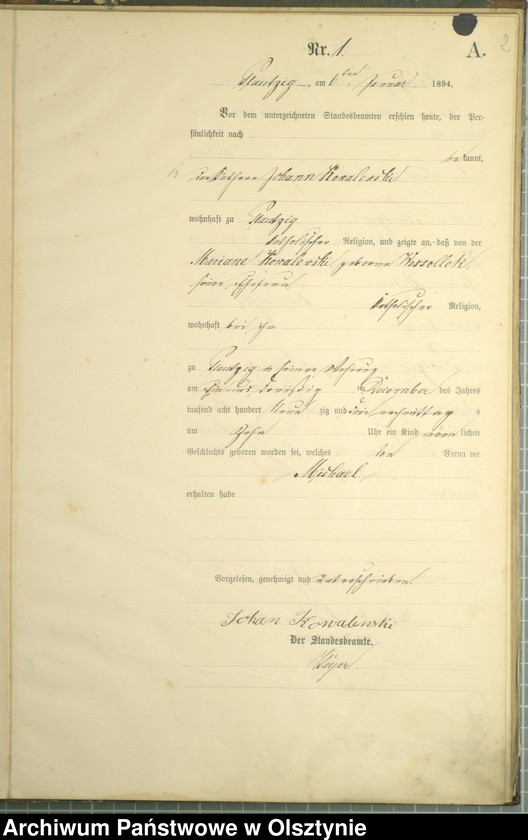 2
Nr. 1.
A.
Plautzig, am 6ten Januar 1894.
Vor dem unterzeichneten Standesbeamten erschien heute, der Per-
sönlichkeit nach
bekannt,
Johann Kowalewski
wohnhaft zu Plautzig
katholischer Religion, und zeigte an, daß von der
Mariane Kowalewski, geborne Kossollek
seine Ehefrau
katholischer Religion,
wohnhaft bei ihm
zu Plautzig in seiner Wohnung
am ein und dreißig ten Dezember des Jahres
tausend acht hundert neun zig und drei nachmittags
um zehn Uhr ein Kind männlichen
Geschlechts geboren worden sei, welches den Vorname
Michael
erhalten habe
Vorgelesen, genehmigt und unterschrieben.
Johan Kowalewski
Der Standesbeamte.
Archiwum Państwowe w Olsztynie